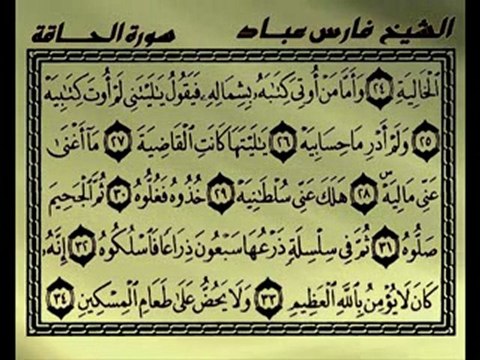 الشيخ فارس عباد سورة الحاقة
الْخَالِيَةِ ٢٤ وَأَمَّا مَنْ أُوتِيَ كِتَابَهُ بِشِمَالِهِ فَيَقُولُ يَا لَيْتَنِي لَمْ أُوتَ كِتَابِيَهْ
٢٥ وَلَمْ أَدْرِ مَا حِسَابِيَهْ ٢٦ يَا لَيْتَهَا كَانَتِ الْقَاضِيَةَ ٢٧ مَا أَغْنَى
عَنِّي مَالِيَهْ ٢٨ هَلَكَ عَنِّي سُلْطَانِيَهْ ٢٩ خُذُوهُ فَغُلُّوهُ ٣٠ ثُمَّ الْجَحِيمَ
صَلُّوهُ ٣١ ثُمَّ فِي سِلْسِلَةٍ ذَرْعُهَا سَبْعُونَ ذِرَاعًا فَاسْلُكُوهُ ٣٢ إِنَّهُ
كَانَ لَا يُؤْمِنُ بِاللَّهِ الْعَظِيمِ ٣٣ وَلَا يَحُضُّ عَلَى طَعَامِ الْمِسْكِينِ ٣٤